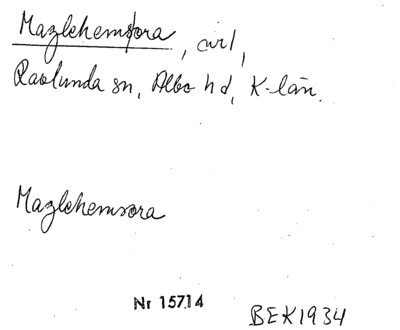 Mazlehemsora, curl,
Ravlunda sn, Albo hd, K-län.
Mazlehemsora
Nr 15714
BEK1934